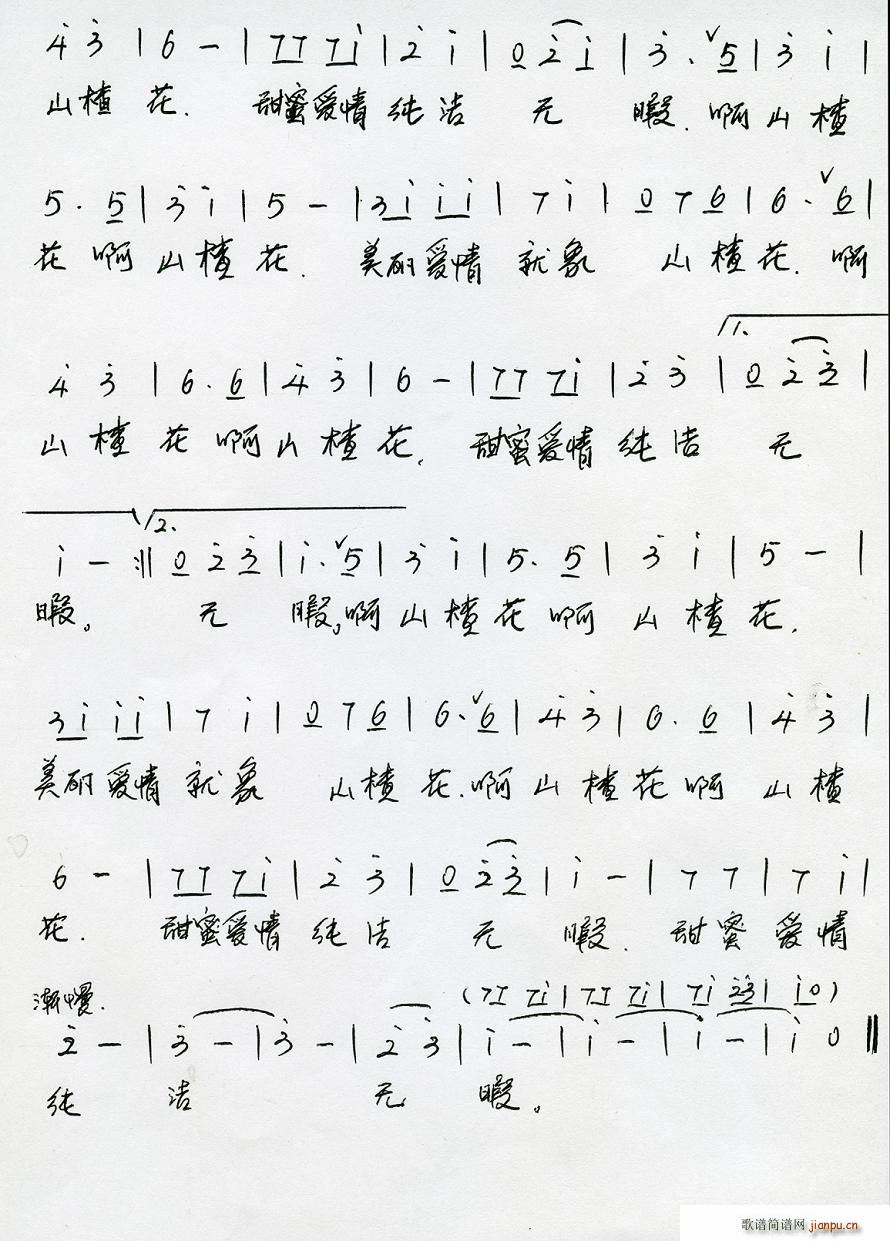 4̇ 3̇ | 6 — | 7 7 7 i̇ | 2̇ i̇ | 0 2̇ i̇ | 3̇ . ∨ 5 | 3̇ i̇ |
山楂 花. 甜蜜爱情 纯洁 无 暇. 啊 山 楂
5 . 5 | 3̇ i̇ | 5 — | 3 i̇ i̇ i̇ | 7 i̇ | 0 7 6 | 6 . ∨ 6 |
花 啊 山 楂 花. 美丽爱情 就象 山 楂 花. 啊
1.
4̇ 3̇ | 6 . 6 | 4̇ 3̇ | 6 — | 7 7 7 i̇ | 2̇ 3̇ | 0 2̇ 3̇ |
山 楂 花 啊 山 楂 花. 甜蜜爱情 纯洁 无
2.
i̇ — :‖ 0 2̇ 3̇ | i̇ . ∨ 5 | 3̇ i̇ | 5 . 5 | 3̇ i̇ | 5 — |
暇。 无 暇。啊 山 楂 花 啊 山 楂 花.
3 i̇ i̇ i̇ | 7 i̇ | 0 7 6 | 6 . ∨ 6 | 4̇ 3̇ | 6 . 6 | 4̇ 3̇ |
美丽爱情 就象 山楂 花. 啊 山 楂 花 啊 山 楂
6 — | 7 7 7 i̇ | 2̇ 3̇ | 0 2̇ 3̇ | i̇ — | 7 7 | 7 i̇ |
花. 甜蜜爱情 纯洁 无 暇. 甜蜜 爱情
渐慢. (7 7 7 i̇ | 7 7 7 i̇ | 7 i̇ 2̇ 3̇ | i̇ 0)
2̇ — | 3̇ — | 3̇ — | 2̇ 3̇ | i̇ — | i̇ — | i̇ — | i̇ 0 ‖
纯 洁 无 暇。
歌谱简谱网 jianpu.cn